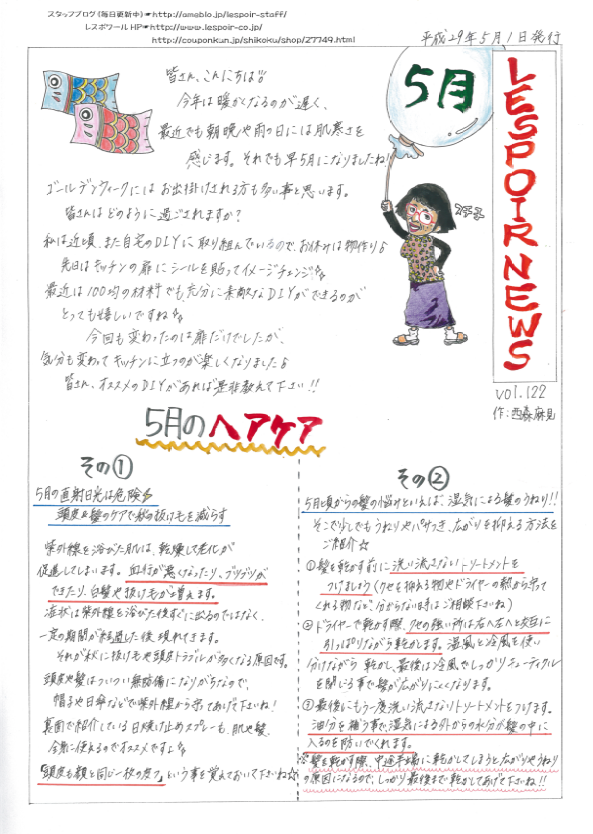 スタッフブログ(毎日更新中)☛http://ameblo.jp/lespoir-staff/
レスポワールHP☛http://www.lespoir-co.jp/
http://couponkun.jp/shikoku/shop/27749.html
平成29年5月1日発行
5月
LESPOIR NEWS
vol.122
皆さん、こんにちは
今年は暖かくなるのが遅く、
最近でも朝晩や雨の日には肌寒さを
感じます。それでも早5月になりましたね!
ゴールデンウィークにはお出掛けされる方も多い事と思います。
皆さんはどのように過ごされますか?
私は近頃、また自宅のDIYに取り組んでいるので、お休みは物作り♪
先日はキッチンの扉にシールを貼ってイメージチェンジ
最近は100均の材料でも充分に素敵なDIYができるのが
とっても嬉しいですね
今回も変わったのは扉だけでしたが、
気分も変わってキッチンに立つのが楽しくなりました♪
皆さん、オススメのDIYがあれば是非教えて下さい!!
5月のヘアケア
その①
5月の直射日光は危険
頭皮&髪のケアで秋の抜け毛を減らす
紫外線を浴びた肌は、乾燥して老化が
促進してしまいます。血行が悪くなったり、ブツブツが
できたり、白髪や抜け毛が増えます。
症状は紫外線を浴びた後すぐに出るのではなく、
一定の期間が経過した後、現れてきます。
それが秋に抜け毛や頭皮トラブルが多くなる原因です。
頭皮や髪はついつい無防備になりがちなので、
帽子や日傘などで紫外線から守ってあげて下さいね!
裏面で紹介している日焼け止めスプレーも、肌や髪、
全身に使えるのでオススメですよ
「頭皮も顔と同じ一枚の皮」という事を覚えておいて下さいね☆
その②
5月頃からの髪の悩みといえば、湿気による髪のうねり!!
そこで少しでもうねりやパサつき、広がりを抑える方法を
ご紹介☆
①髪を乾かす前に洗い流さないトリートメントを
つけましょう(クセを抑える物やドライヤーの熱から守って
くれる物など、分からない時はご相談下さいね)
②ドライヤーで乾かす際、クセの強い所は右へ左へと交互に
引っぱりながら乾かします。温風と冷風を使い
分けながら乾かし、最後は冷風でしっかりキューティクル
を閉じる事で髪が広がりにくくなります。
③最後にもう一度洗い流さないトリートメントをつけます。
油分を補う事で、湿気による外からの水分が髪の中に
入るのを防いでくれます。
※髪を乾かす際、中途半端に乾かしてしまうと広がりやうねり
の原因になるので、しっかり最後まで乾かしてあげて下さいね!!